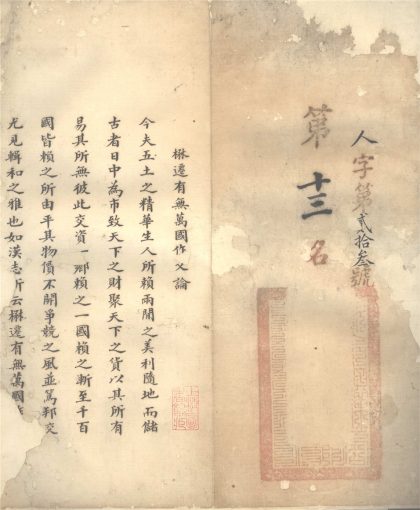 人字第貳拾叁號
第十三名
楙遷有無萬國作乂論
今夫五土之精華生人所賴兩間之美利隨地而儲
古者日中為市致天下之財聚天下之貨以其所有
易其所無彼此交資一鄉賴之一國賴之漸至千百
國皆賴之所由平其物價不開爭競之風並篤邦交
尤見輯和之雅也如漢志所云楙遷有無萬國